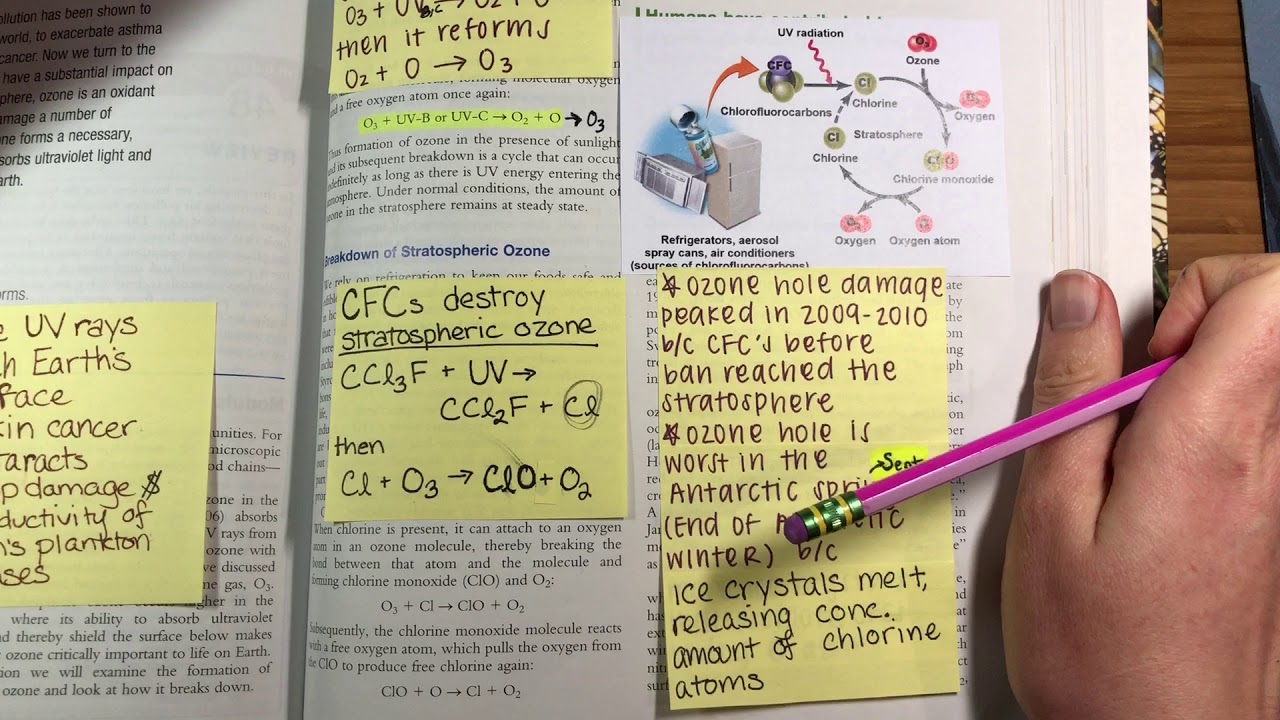 ollution has been shown to
world, to exacerbate asthma
cancer. Now we turn to the
have a substantial impact on
phere, ozone is an oxidant
amage a number of
one forms a necessary,
sorbs ultraviolet light and
arth.
orms.
UV rays
h Earth's
face
in cancer
taracts
p damage $
ductivity of
n's plankton
ses
unities. For
microscopic
od chains—
zone in the
06) absorbs
V rays from
ozone with
we discussed
ne gas, O₃.
gher in the
where its ability to absorb ultraviolet
nd thereby shield the surface below makes
ozone critically important to life on Earth.
ion we will examine the formation of
ozone and look at how it breaks down.
O₃ + UV B,C → O₂ + O
then it reforms
O₂ + O → O₃
forming molecular oxygen
and a free oxygen atom once again:
O₃ + UV-B or UV-C → O₂ + O → O₃
Thus formation of ozone in the presence of sunlight
and its subsequent breakdown is a cycle that can occur
indefinitely as long as there is UV energy entering the
atmosphere. Under normal conditions, the amount of
ozone in the stratosphere remains at steady state.
Breakdown of Stratospheric Ozone
We rely on refrigeration to keep our foods safe and
CFCs destroy
stratospheric ozone
CCl₃F + UV →
CCl₂F + Cl
then
Cl + O₃ → ClO + O₂
When chlorine is present, it can attach to an oxygen
atom in an ozone molecule, thereby breaking the
bond between that atom and the molecule and
forming chlorine monoxide (ClO) and O₂:
O₃ + Cl → ClO + O₂
Subsequently, the chlorine monoxide molecule reacts
with a free oxygen atom, which pulls the oxygen from
the ClO to produce free chlorine again:
ClO + O → Cl + O₂
Humans have contributed
UV radiation
CFC
Chlorofluorocarbons
O₃
Ozone
Cl
Chlorine
O₂
Oxygen
Stratosphere
Cl
Chlorine
Cl O
Chlorine monoxide
O₂
Oxygen
O
Oxygen atom
Refrigerators, aerosol
spray cans, air conditioners
(sources of chlorofluorocarbons)
* ozone hole damage
peaked in 2009-2010
b/c CFC's before
ban reached the
stratosphere
* ozone hole is
worst in the
→ Sept
Antarctic spri
(End of A tic
winter) b/c
ice crystals melt,
releasing conc.
amount of chlorine
atoms